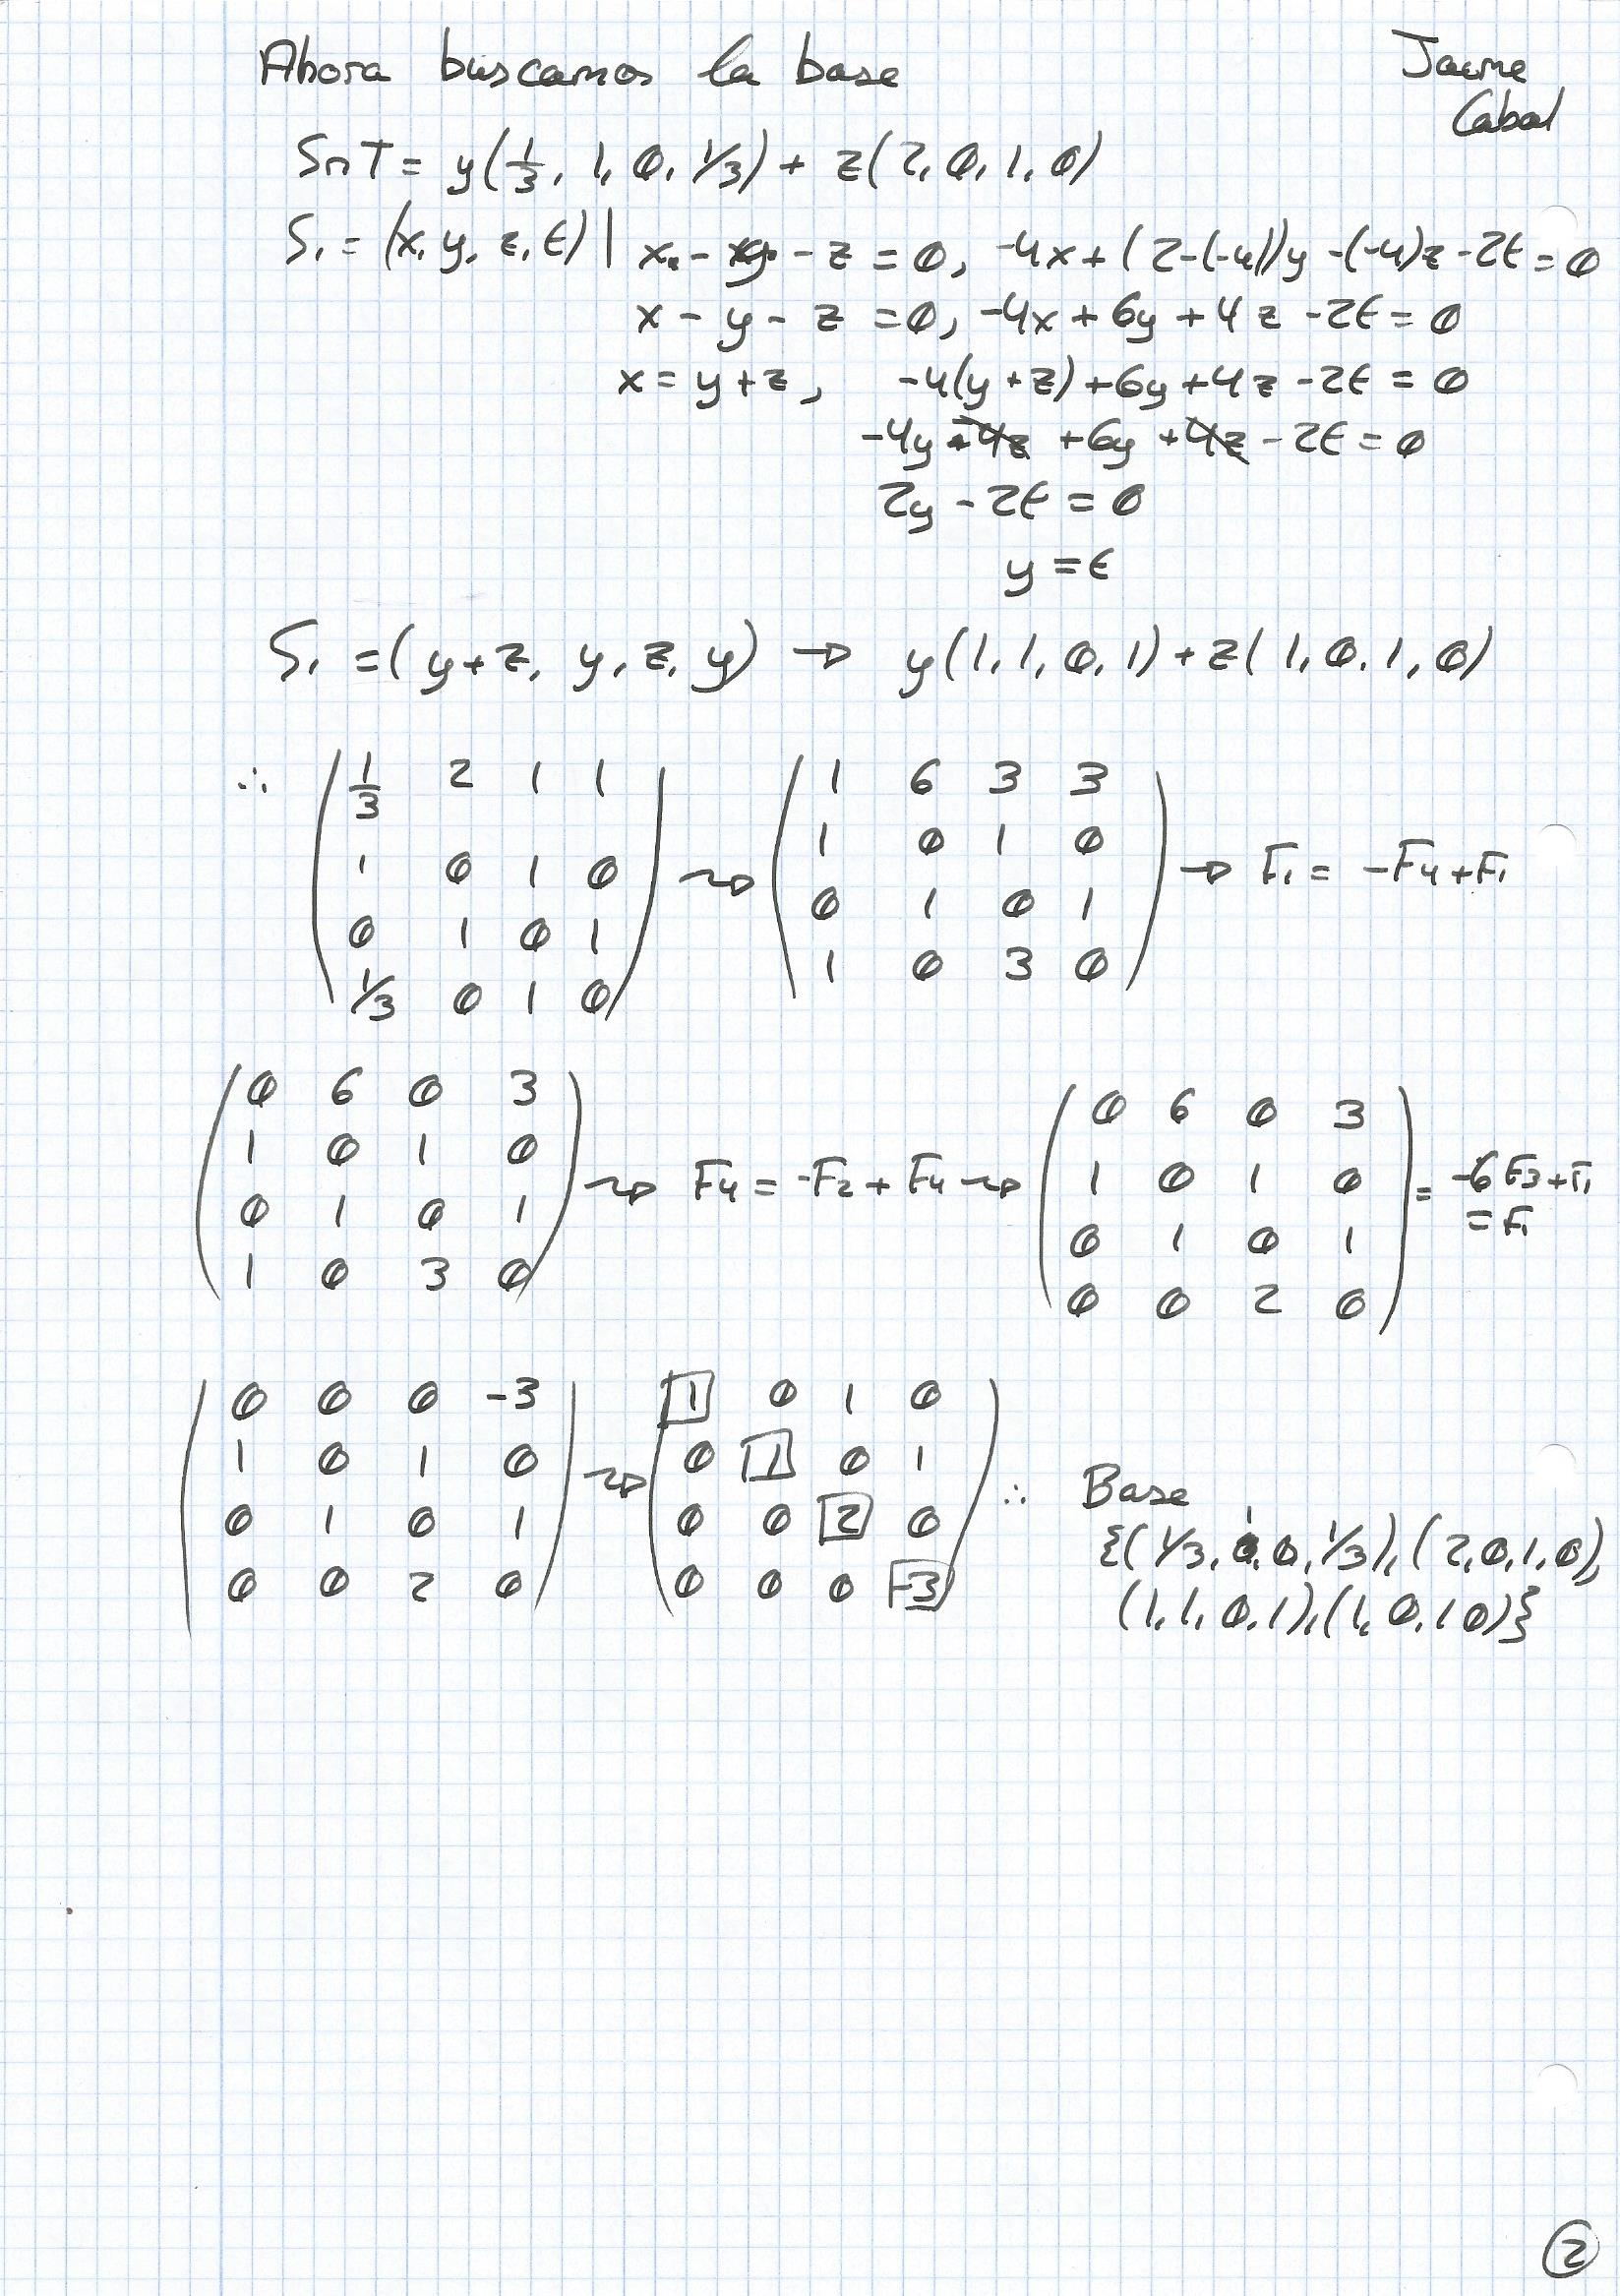 Ahora buscamos la base
Jaume
Cabal
S∩T = y(1/3, 1, 0, 1/3) + z(2, 0, 1, 0)
S₁ = (x, y, z, t) | x - y - z = 0, -4x + (2-(-4))y -(-4)z - 2t = 0
x - y - z = 0, -4x + 6y + 4z - 2t = 0
x = y + z, -4(y + z) + 6y + 4z - 2t = 0
-4y - 4z + 6y + 4z - 2t = 0
2y - 2t = 0
y = t
S₁ = (y+z, y, z, y) → y(1, 1, 0, 1) + z(1, 0, 1, 0)
∴ (1/3 2 1 1 ⇝ (1 6 3 3
1 0 1 0 1 0 1 0
0 1 0 1 0 1 0 1
1/3 0 1 0) 1 0 3 0) → F₁ = -F₄ + F₁
(0 6 0 3 (0 6 0 3
1 0 1 0 1 0 1 0
0 1 0 1 0 1 0 1
1 0 3 0) ⇝ F₄ = -F₂ + F₄ ⇝ 0 0 2 0) = -6F₃ + F₁
= F₁
(0 0 0 -3 (1 0 1 0
1 0 1 0 0 1 0 1
0 1 0 1 0 0 2 0
0 0 2 0) ⇝ 0 0 0 -3) ∴ Base
{(1/3, 1, 0, 1/3), (2, 0, 1, 0),
(1, 1, 0, 1), (1, 0, 1 0)}
2